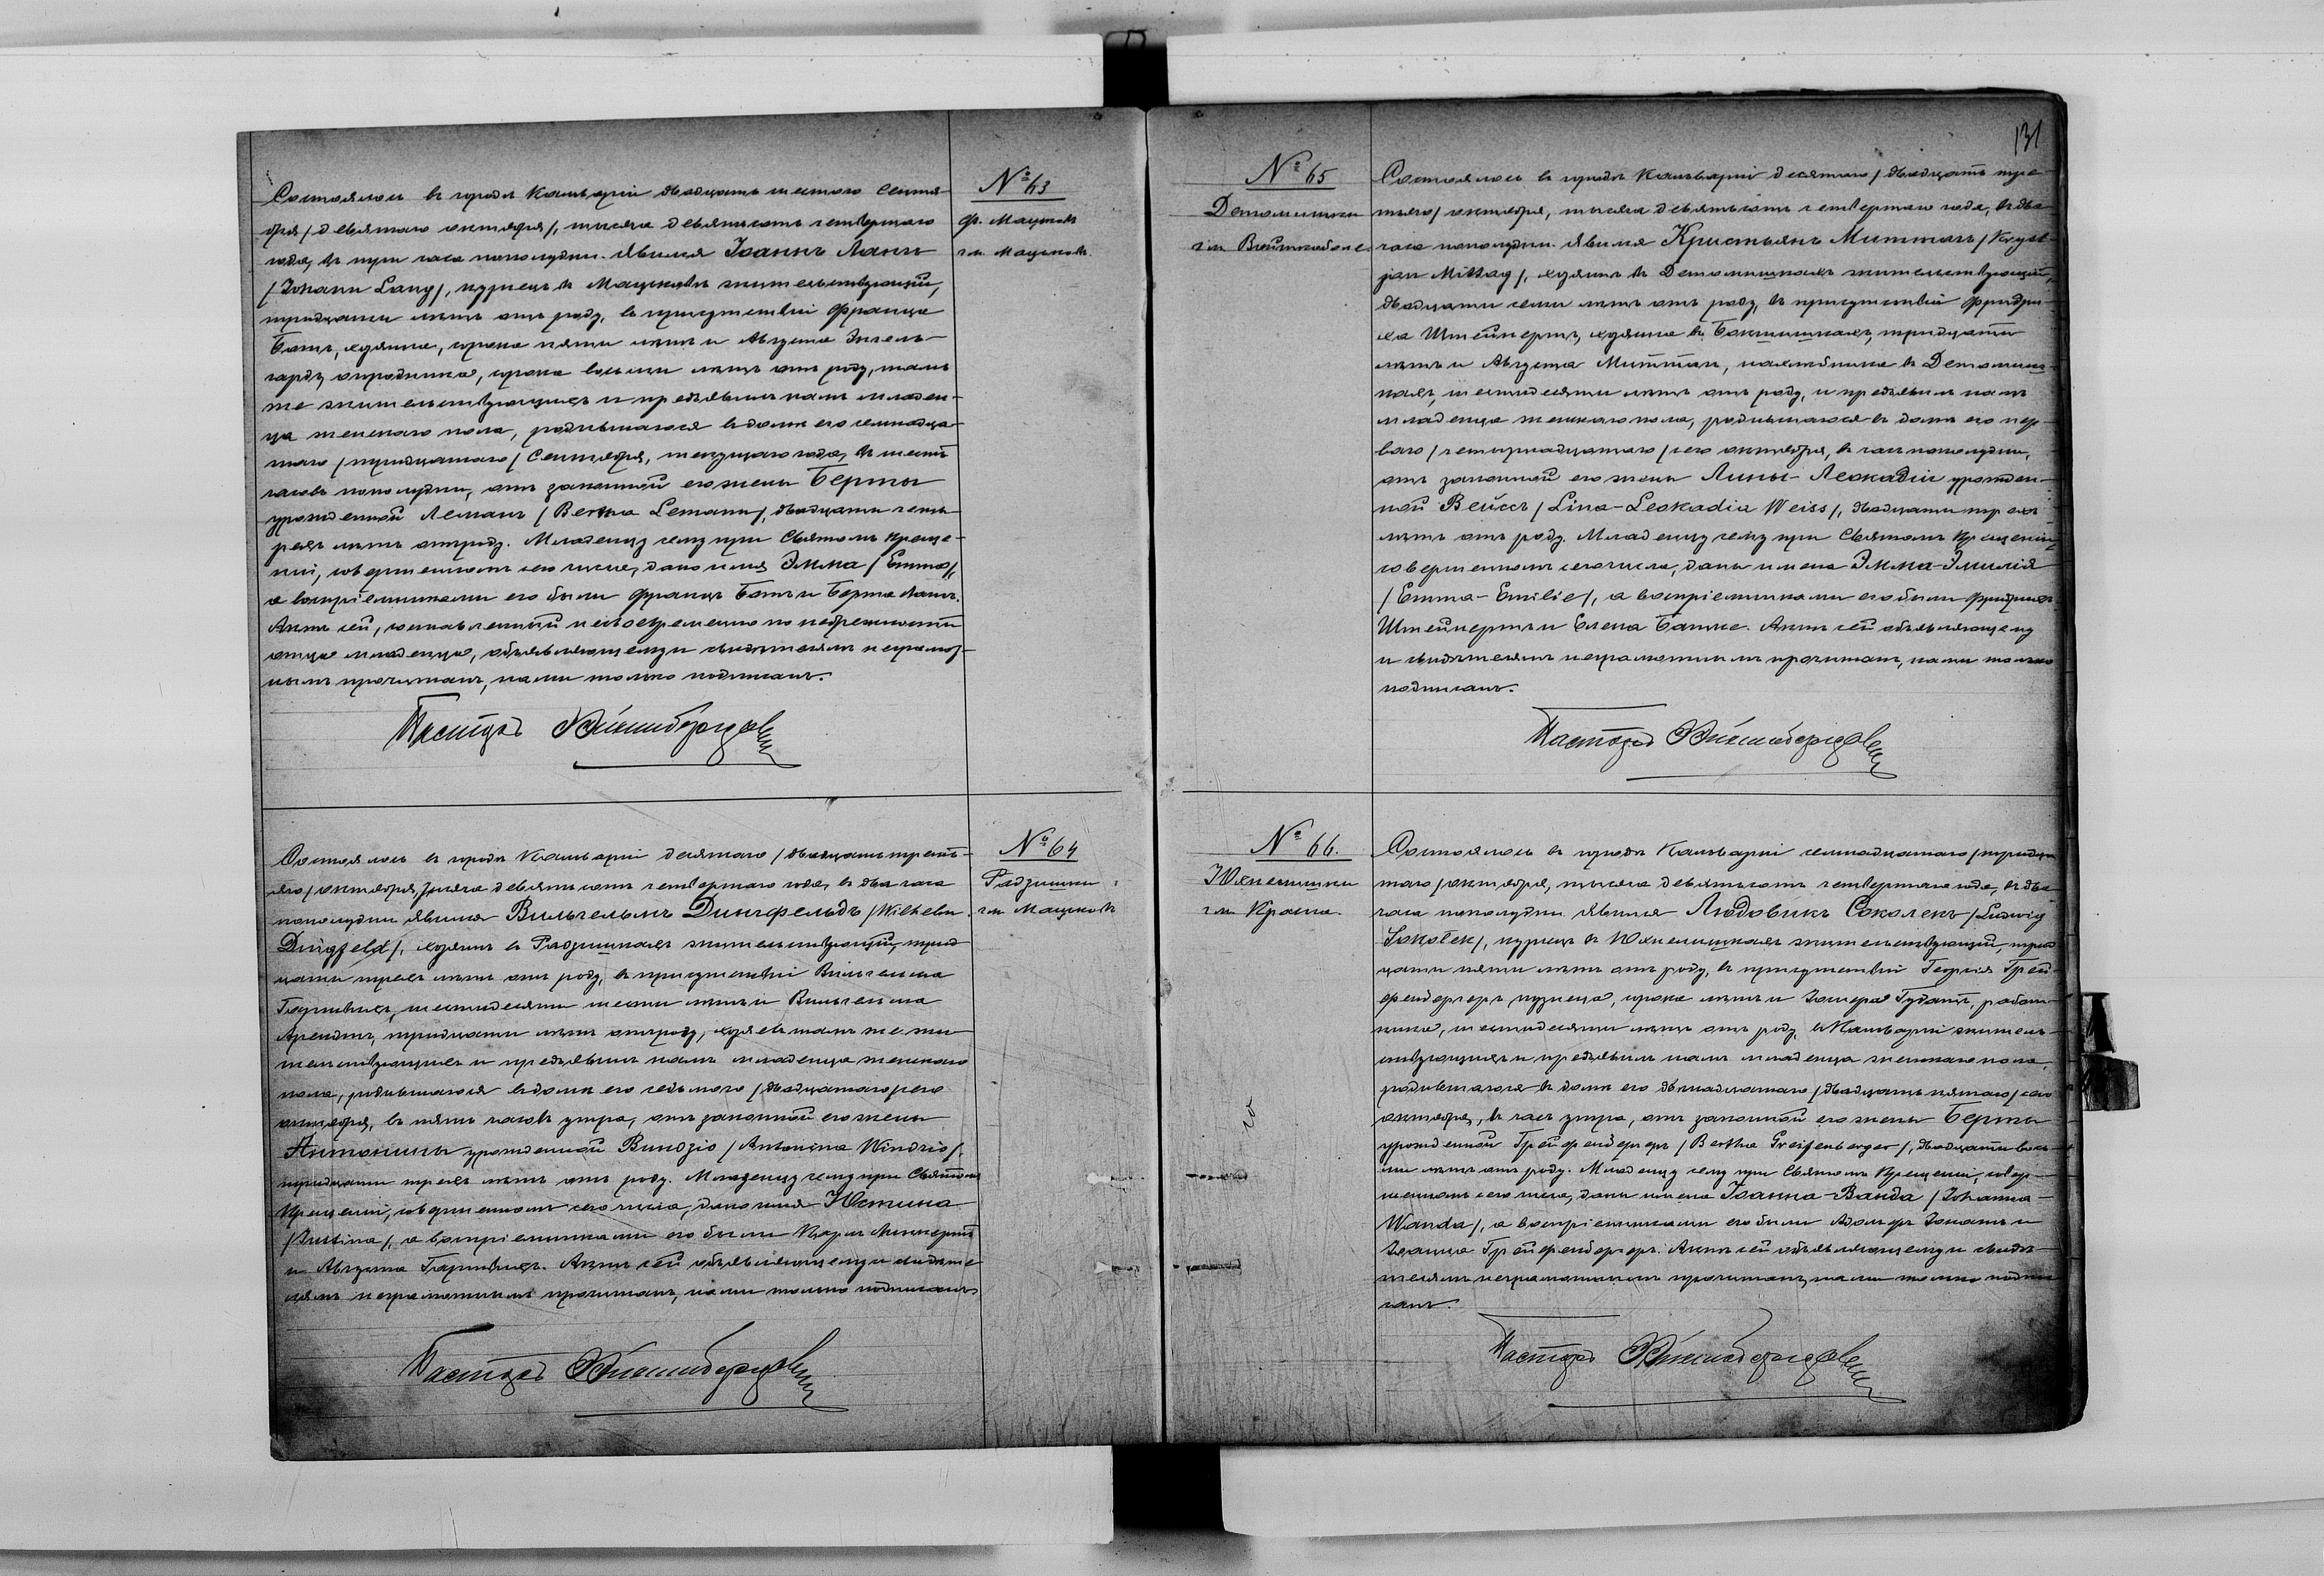 № 63
ф. Мацковъ
гм. Мацковъ.
Состоялось въ городѣ Кальваріи двадцать шестого Сентя-
бря /девятаго октября/, тысяча девятьсотъ четвертаго
года, въ три часа пополудни. Явился Іоаннъ Лангъ
/Johann Lang/, кузнецъ въ Мацковѣ жительствующій,
тридцати лѣтъ отъ роду, въ присутствіи Франца
Батъ, хозяина, сорока пяти лѣтъ и Августа Энгель-
гардъ, огородника, сорока восьми лѣтъ отъ роду, тамъ
же жительствующихъ и предъявилъ намъ младен-
ца женскаго пола, родившагося въ домѣ его семнадца-
таго /тридцатаго/ Сентября, текущаго года, въ шесть
часовъ пополудни, отъ законной его жены Берты
урожденной Леманъ /Bertha Lemann/, двадцати четы-
рехъ лѣтъ отъ роду. Младенцу сему при Святомъ Креще-
ніи, совершенномъ сего числа, дано имя Эмма /Emma/,
а воспріемниками его были Францъ Батъ и Берта Лангъ.
Актъ сей, составленный несвоевременно по небрежности
отца младенца, объявляющему и свидѣтелямъ неграмот-
нымъ прочитанъ, нами только подписанъ.
Пасторъ
№ 64
Радзишки
гм. Мацковъ
Состоялось въ городѣ Кальваріи десятаго /двадцать треть-
яго/ октября, тысяча девятьсотъ четвертаго года, въ два часа
пополудни. Явился Вильгельмъ Дингфельдъ /Wilhelm
Dingfeld/, хозяинъ въ Радзишкахъ жительствующій, трид-
цати трехъ лѣтъ отъ роду, въ присутствіи Вильгельма
шестидесяти шести лѣтъ и Вильгельма
Арендтъ, тридцати лѣтъ отъ роду, хозяевъ тамъ же жи-
тельствующихъ и предъявилъ намъ младенца женскаго
пола, родившагося въ домѣ его седьмого /двадцатаго/ сего
октября, въ пять часовъ утра, отъ законной его жены
Антонины урожденной Виндзіо /Antonina Windzio/,
тридцати трехъ лѣтъ отъ роду. Младенцу сему при Святомъ
Крещеніи, совершенномъ сего числа, дано имя Юстина
/Justina/, а воспріемниками его были Карлъ
и Августа Актъ сей объявляющему и свидѣте-
лямъ неграмотнымъ прочитанъ, нами только подписанъ
Пасторъ
131
№ 65
Детомишки
гм.
Состоялось въ городѣ Кальваріи десятаго /двадцать тре-
тьяго/ октября, тысяча девятьсотъ четвертаго года, въ два
часа пополудни. Явился Кристьянъ Миттагъ /Kryst-
jan Mittag/, хозяинъ въ Детомишкахъ жительствующій,
двадцати семи лѣтъ отъ роду, въ присутствіи Фридри-
ха Штейнертъ, хозяина въ тридцати
лѣтъ и Августа Миттагъ, въ Детомиш-
кахъ, шестидесяти лѣтъ отъ роду, и предъявилъ намъ
младенца женскаго пола, родившагося въ домѣ его пер-
ваго /четырнадцатаго/ сего октября, въ часъ пополудни,
отъ законной его жены Лины-Леокадіи урожден-
ной Вейссъ /Lina-Leokadia Weiss/, двадцати трехъ
лѣтъ отъ роду. Младенцу сему при Святомъ Крещеніи,
совершенномъ сего числа, даны имена Эмма-Эмилія
/Emma-Emilie/, а воспріемниками его были Фридрихъ
Штейнертъ и Елена Актъ сей объявляющему
и свидѣтелямъ неграмотнымъ прочитанъ, нами только
подписанъ.
Пасторъ
№ 66.
Юхнелишки
гм. Красна.
Состоялось въ городѣ Кальваріи семнадцатаго /тридца-
таго/ октября, тысяча девятьсотъ четвертаго года, въ два
часа пополудни. Явился Людовикъ Соколекъ /Ludwig
Sokołek/, кузнецъ въ Юхнелишкахъ жительствующій, трид-
цати пяти лѣтъ отъ роду, въ присутствіи Георгія Грей-
фенбергеръ, кузнеца, сорока лѣтъ и работ-
ника, шестидесяти лѣтъ отъ роду, въ Кальваріи житель-
ствующихъ и предъявилъ намъ младенца женскаго пола,
родившагося въ домѣ его двѣнадцатаго /двадцать пятаго/ сего
октября, въ часъ утра, отъ законной его жены Берты
урожденной Грейфенбергеръ /Bertha Greifenberger/, двадцати вось-
ми лѣтъ отъ роду. Младенцу сему при Святомъ Крещеніи, совер-
шенномъ сего числа, даны имена Іоанна-Ванда /Johanna-
Wanda/, а воспріемниками его были Адольфъ и
Іоанна Грейфенбергеръ. Актъ сей объявляющему и свидѣ-
телямъ неграмотнымъ прочитанъ, нами только подпи-
санъ.
Пасторъ